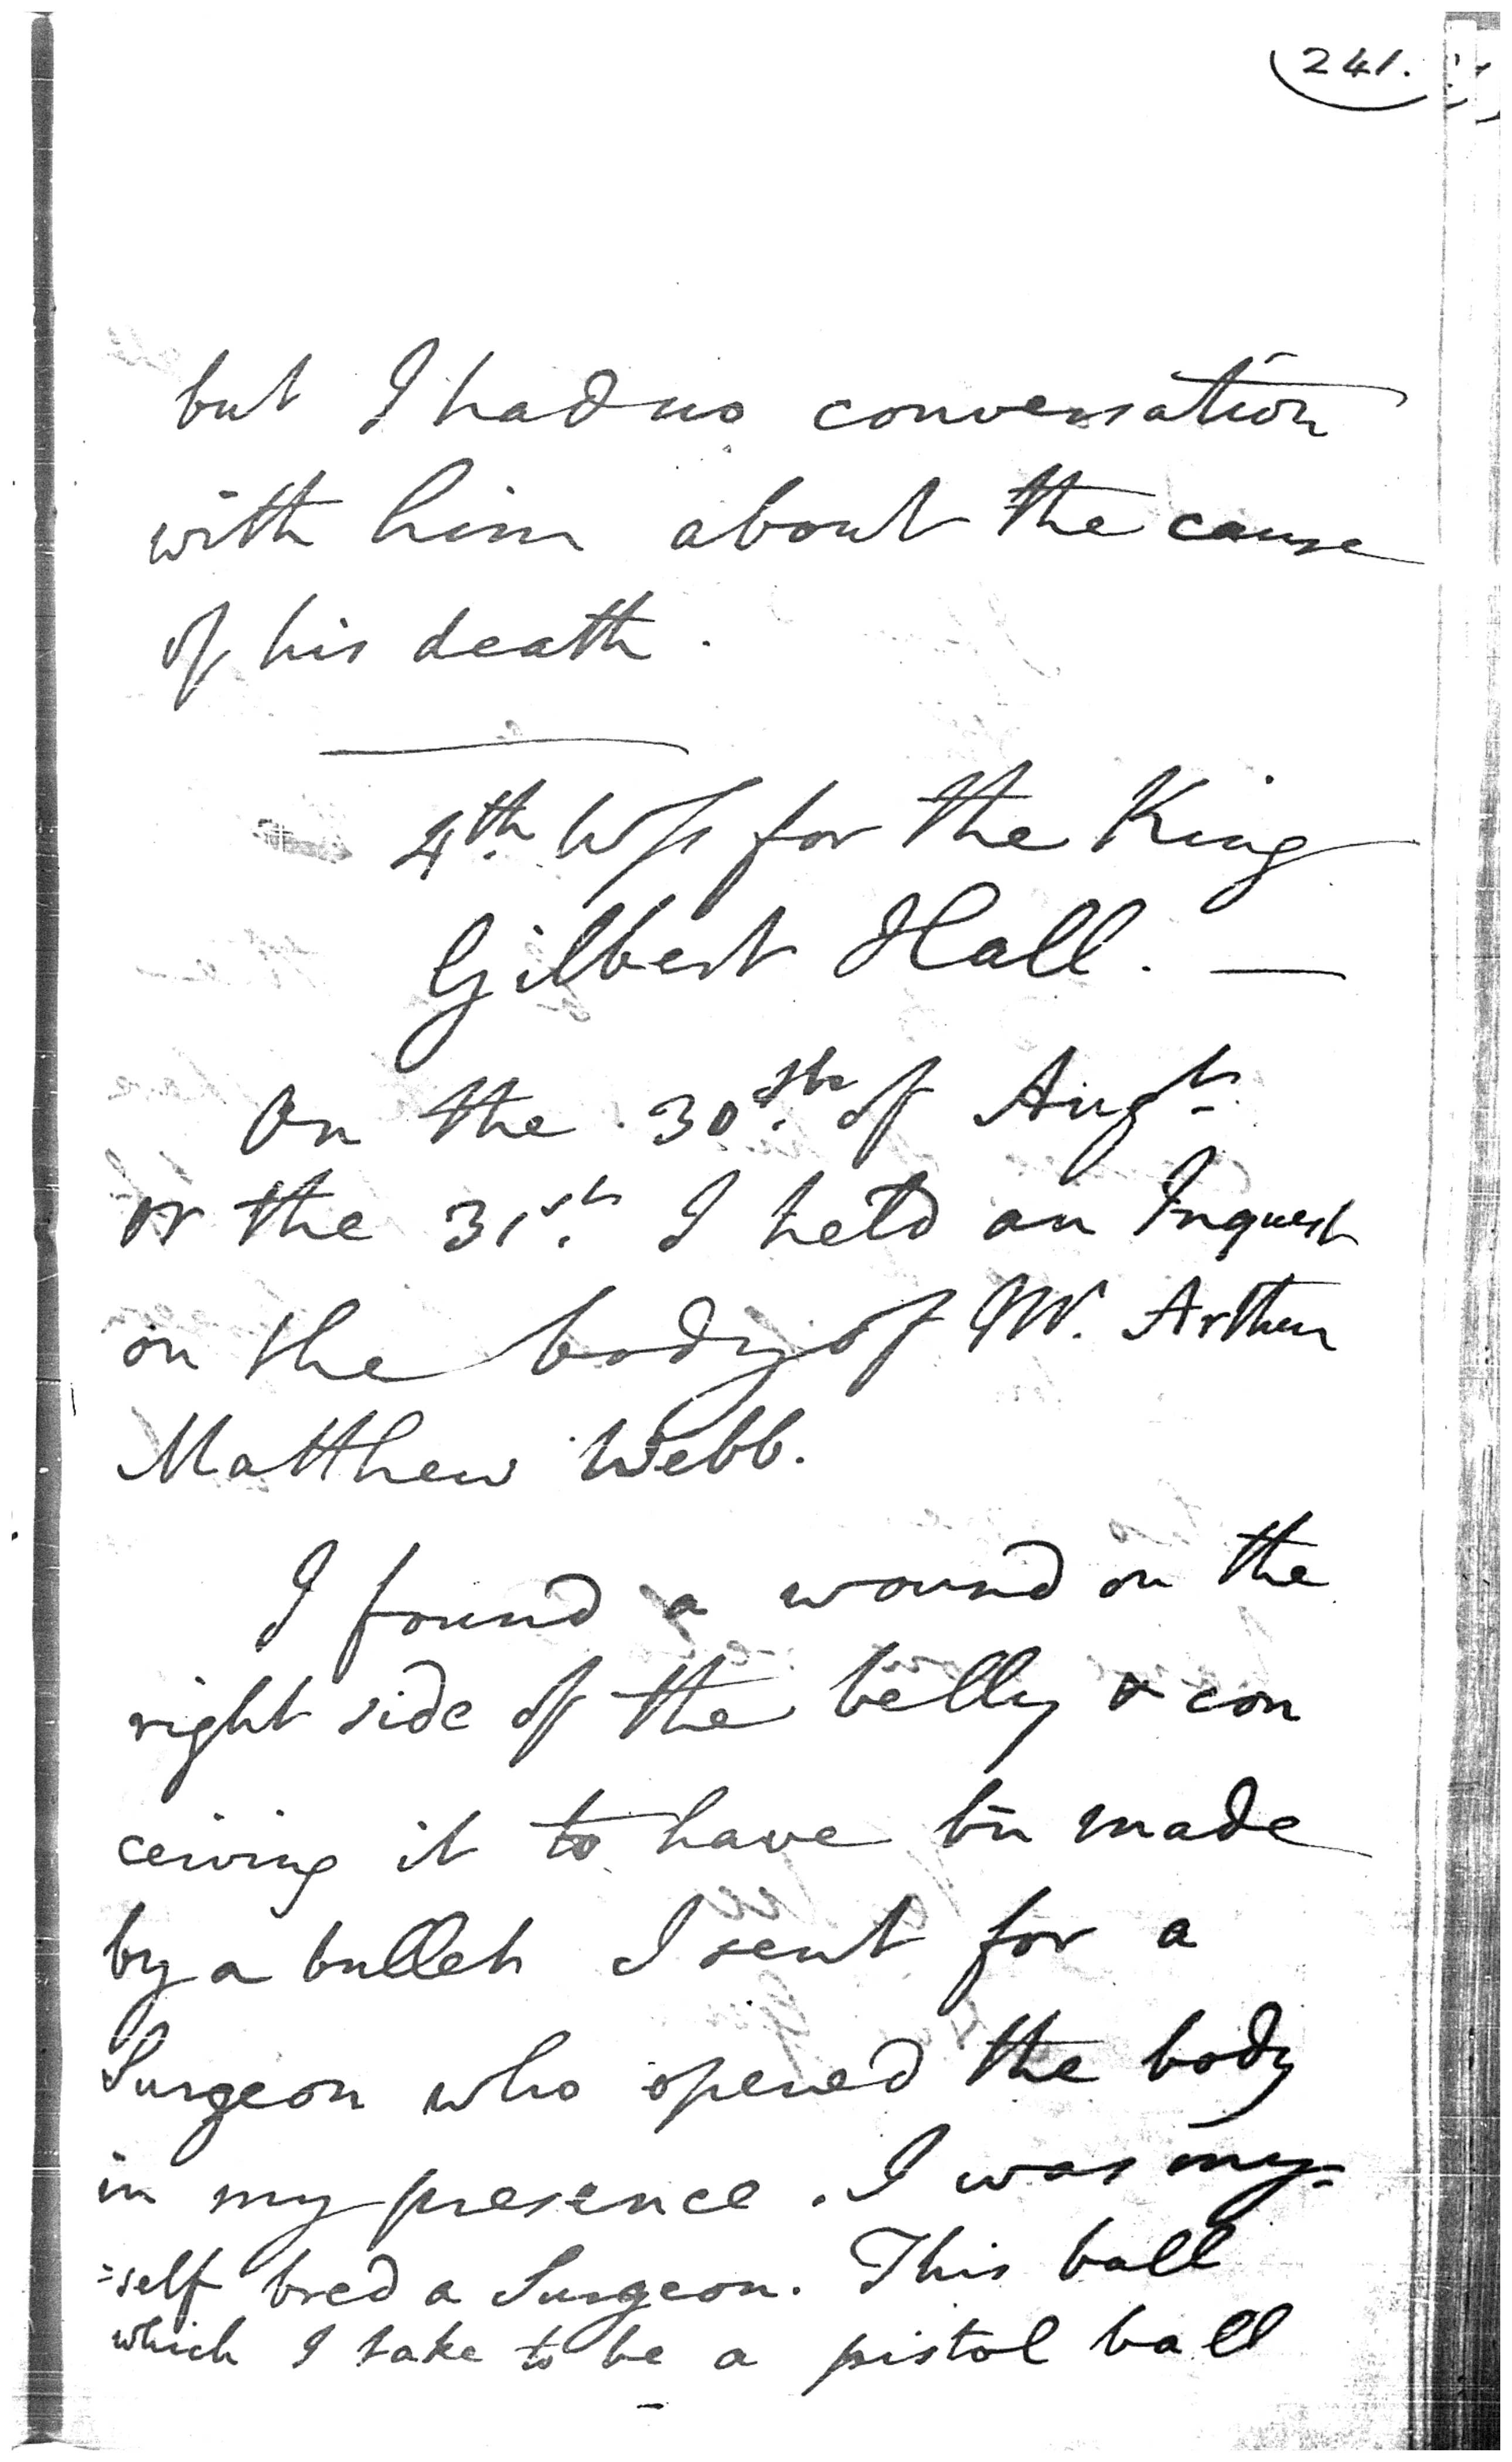 241.
but I had no conversation
with him about the cause
of his death.
4th. Wss for the King
Gilbert Hall. —
On the 30th. of Augt.
or the 31st. I held an Inquest
on the body of Mr. Arthur
Matthew Webb.
I found a wound on the
right side of the belly & con
ceiving it to have bn made
by a bullet I sent for a
Surgeon who opened the body
in my presence. I was my=
=self bred a Surgeon. This ball
which I take to be a pistol ball